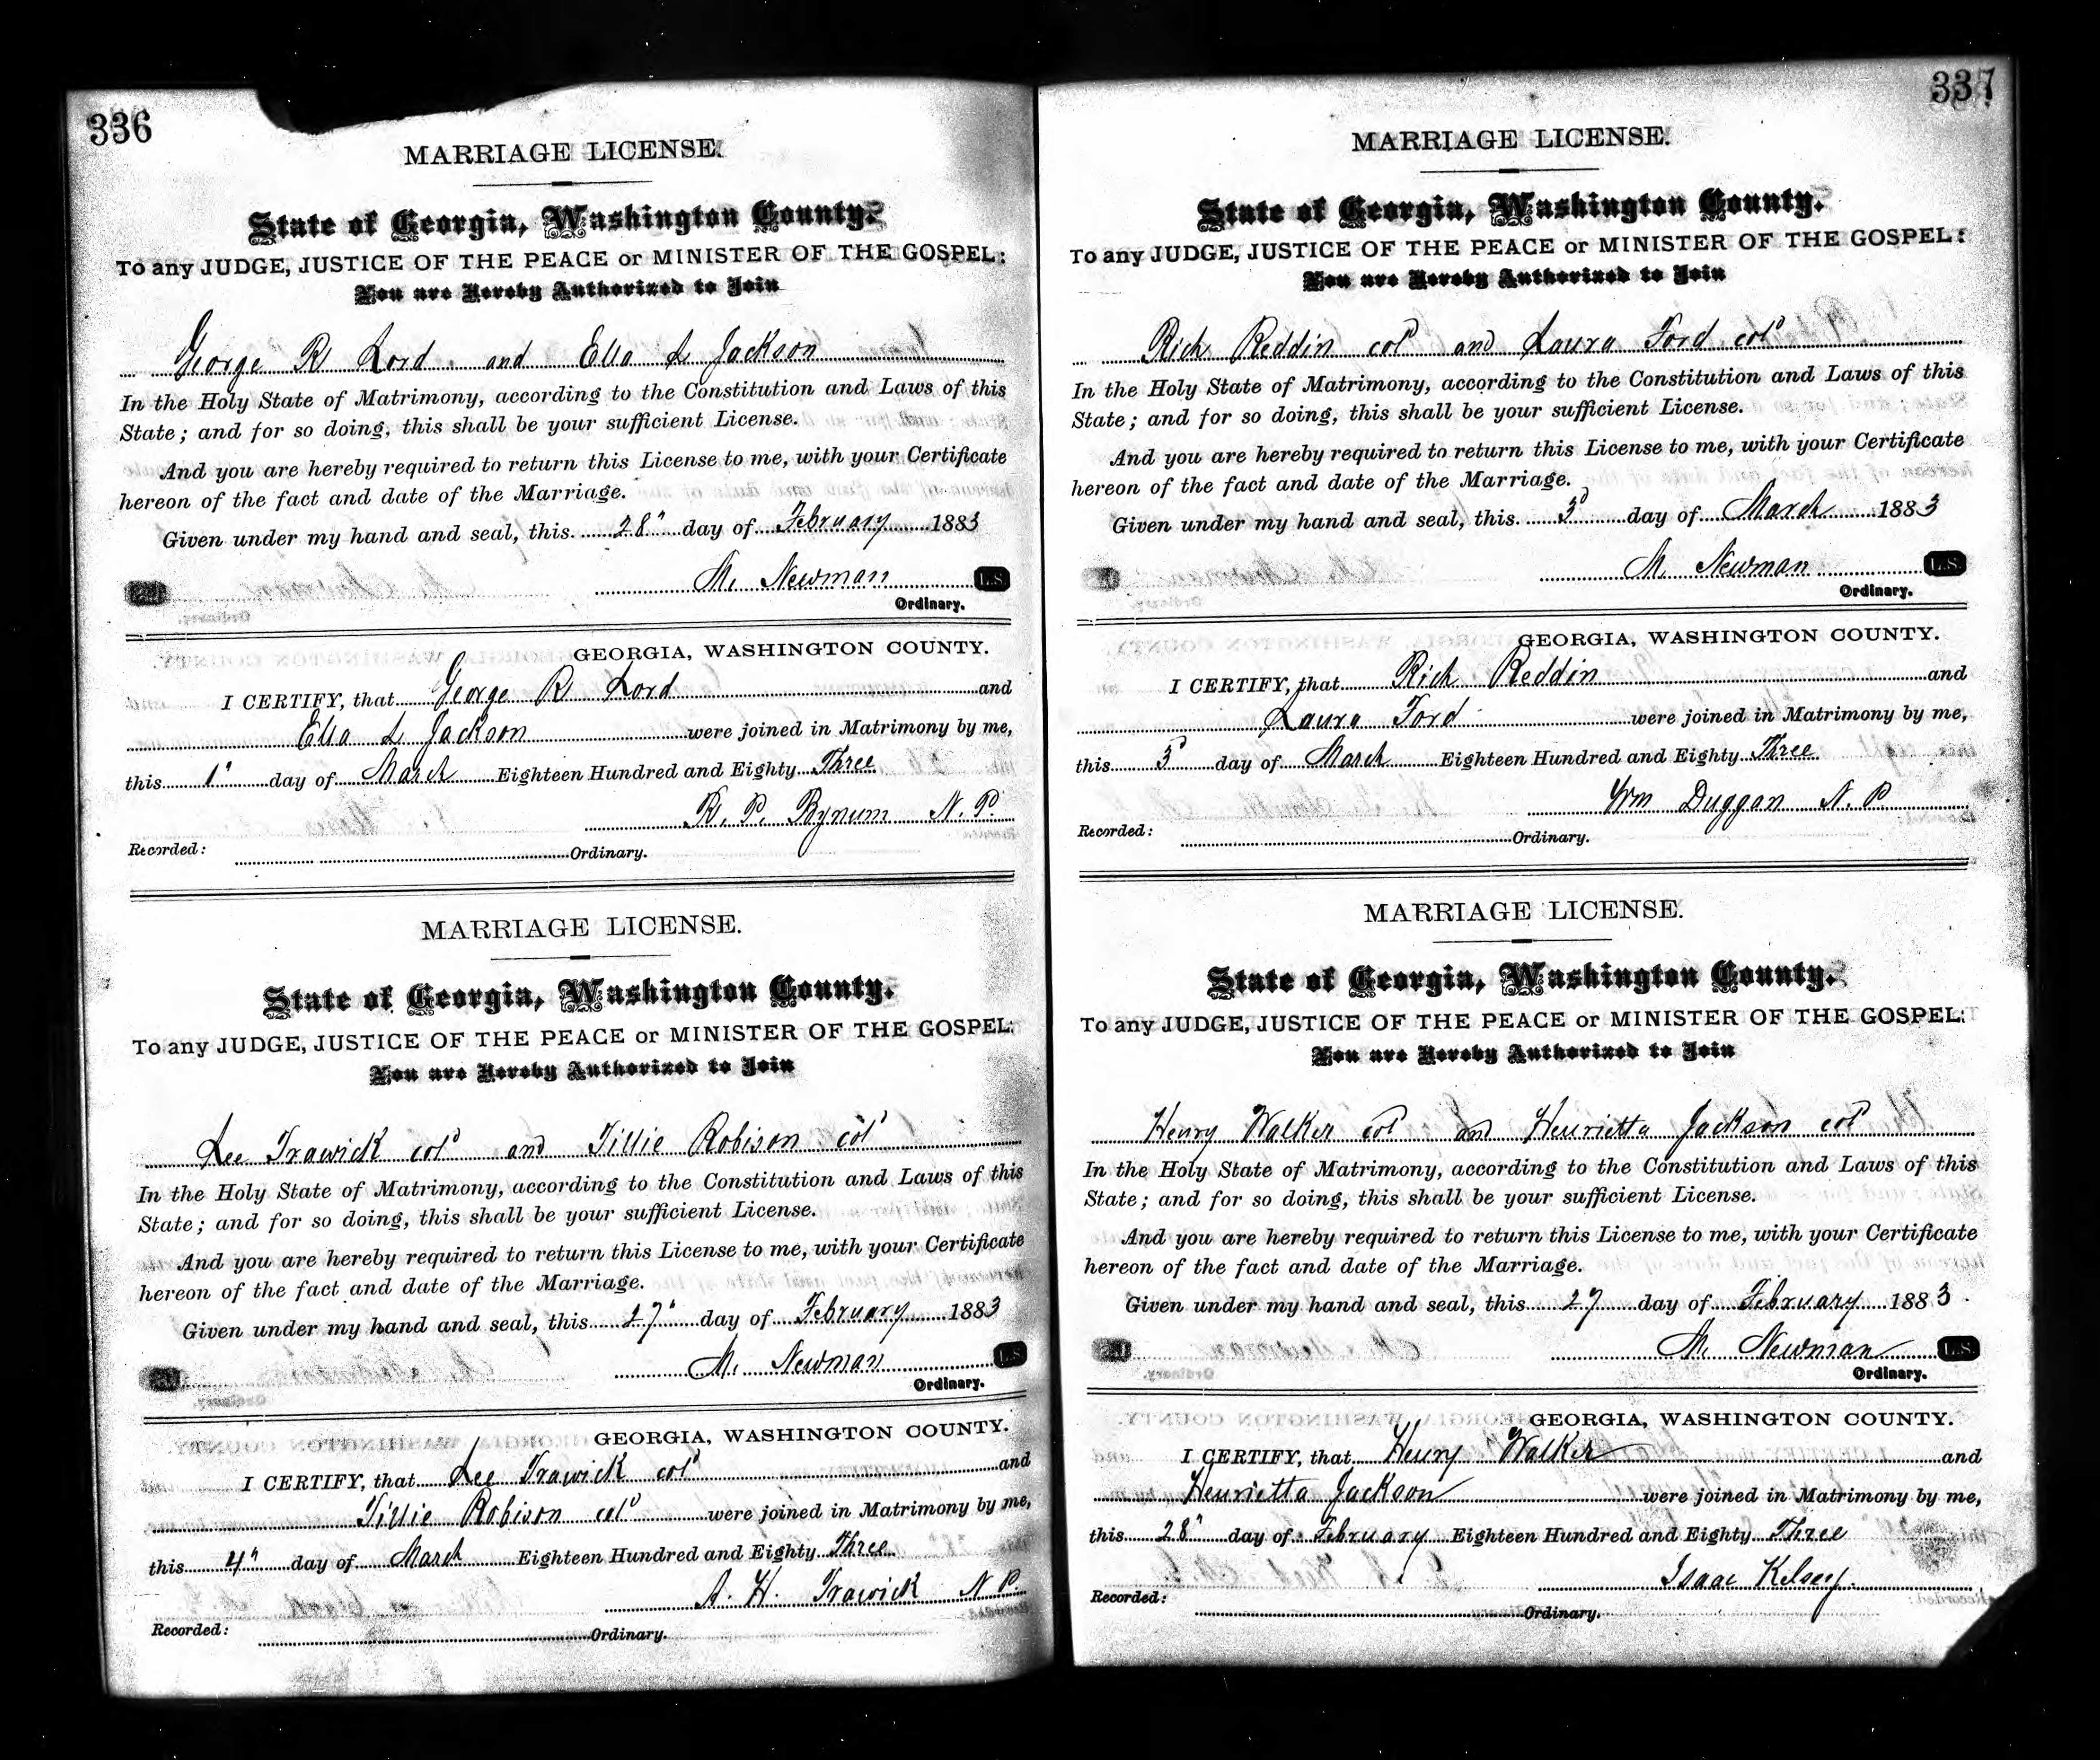 336
MARRIAGE LICENSE.
State of Georgia, Washington County.
To any JUDGE, JUSTICE OF THE PEACE or MINISTER OF THE GOSPEL:
You are Hereby Authorized to Join
George R Lord and Ella L Jackson
In the Holy State of Matrimony, according to the Constitution and Laws of this
State; and for so doing, this shall be your sufficient License.
And you are hereby required to return this License to me, with your Certificate
hereon of the fact and date of the Marriage.
Given under my hand and seal, this 28" day of February 1883
M. Newman L.S.
Ordinary.
GEORGIA, WASHINGTON COUNTY.
I CERTIFY, that George R Lord and
Ella L Jackson were joined in Matrimony by me,
this 1" day of March Eighteen Hundred and Eighty Three
R. P. Bynum N. P.
Recorded: Ordinary.
MARRIAGE LICENSE.
State of Georgia, Washington County.
To any JUDGE, JUSTICE OF THE PEACE or MINISTER OF THE GOSPEL:
You are Hereby Authorized to Join
Lee Trawick cold and Tillie Robison cold
In the Holy State of Matrimony, according to the Constitution and Laws of this
State; and for so doing, this shall be your sufficient License.
And you are hereby required to return this License to me, with your Certificate
hereon of the fact and date of the Marriage.
Given under my hand and seal, this 27" day of February 1883
M. Newman L.S.
Ordinary.
GEORGIA, WASHINGTON COUNTY.
I CERTIFY, that Lee Trawick cold and
Tillie Robison cold were joined in Matrimony by me,
this 4" day of March Eighteen Hundred and Eighty Three
A. H. Trawick N. P.
Recorded: Ordinary.
337
MARRIAGE LICENSE.
State of Georgia, Washington County.
To any JUDGE, JUSTICE OF THE PEACE or MINISTER OF THE GOSPEL:
You are Hereby Authorized to Join
Rich Reddin cold and Laura Ford cold
In the Holy State of Matrimony, according to the Constitution and Laws of this
State; and for so doing, this shall be your sufficient License.
And you are hereby required to return this License to me, with your Certificate
hereon of the fact and date of the Marriage.
Given under my hand and seal, this 3d day of March 1883
M. Newman L.S.
Ordinary.
GEORGIA, WASHINGTON COUNTY.
I CERTIFY, that Rich Reddin and
Laura Ford were joined in Matrimony by me,
this 3d day of March Eighteen Hundred and Eighty Three
Wm Duggan N. P.
Recorded: Ordinary.
MARRIAGE LICENSE.
State of Georgia, Washington County.
To any JUDGE, JUSTICE OF THE PEACE or MINISTER OF THE GOSPEL:
You are Hereby Authorized to Join
Henry Walker cold and Henrietta Jackson cold
In the Holy State of Matrimony, according to the Constitution and Laws of this
State; and for so doing, this shall be your sufficient License.
And you are hereby required to return this License to me, with your Certificate
hereon of the fact and date of the Marriage.
Given under my hand and seal, this 27 day of February 1883.
M. Newman L.S.
Ordinary.
GEORGIA, WASHINGTON COUNTY.
I CERTIFY, that Henry Walker and
Henrietta Jackson were joined in Matrimony by me,
this 28" day of February Eighteen Hundred and Eighty Three
Isaac Kelsey.
Recorded: Ordinary.